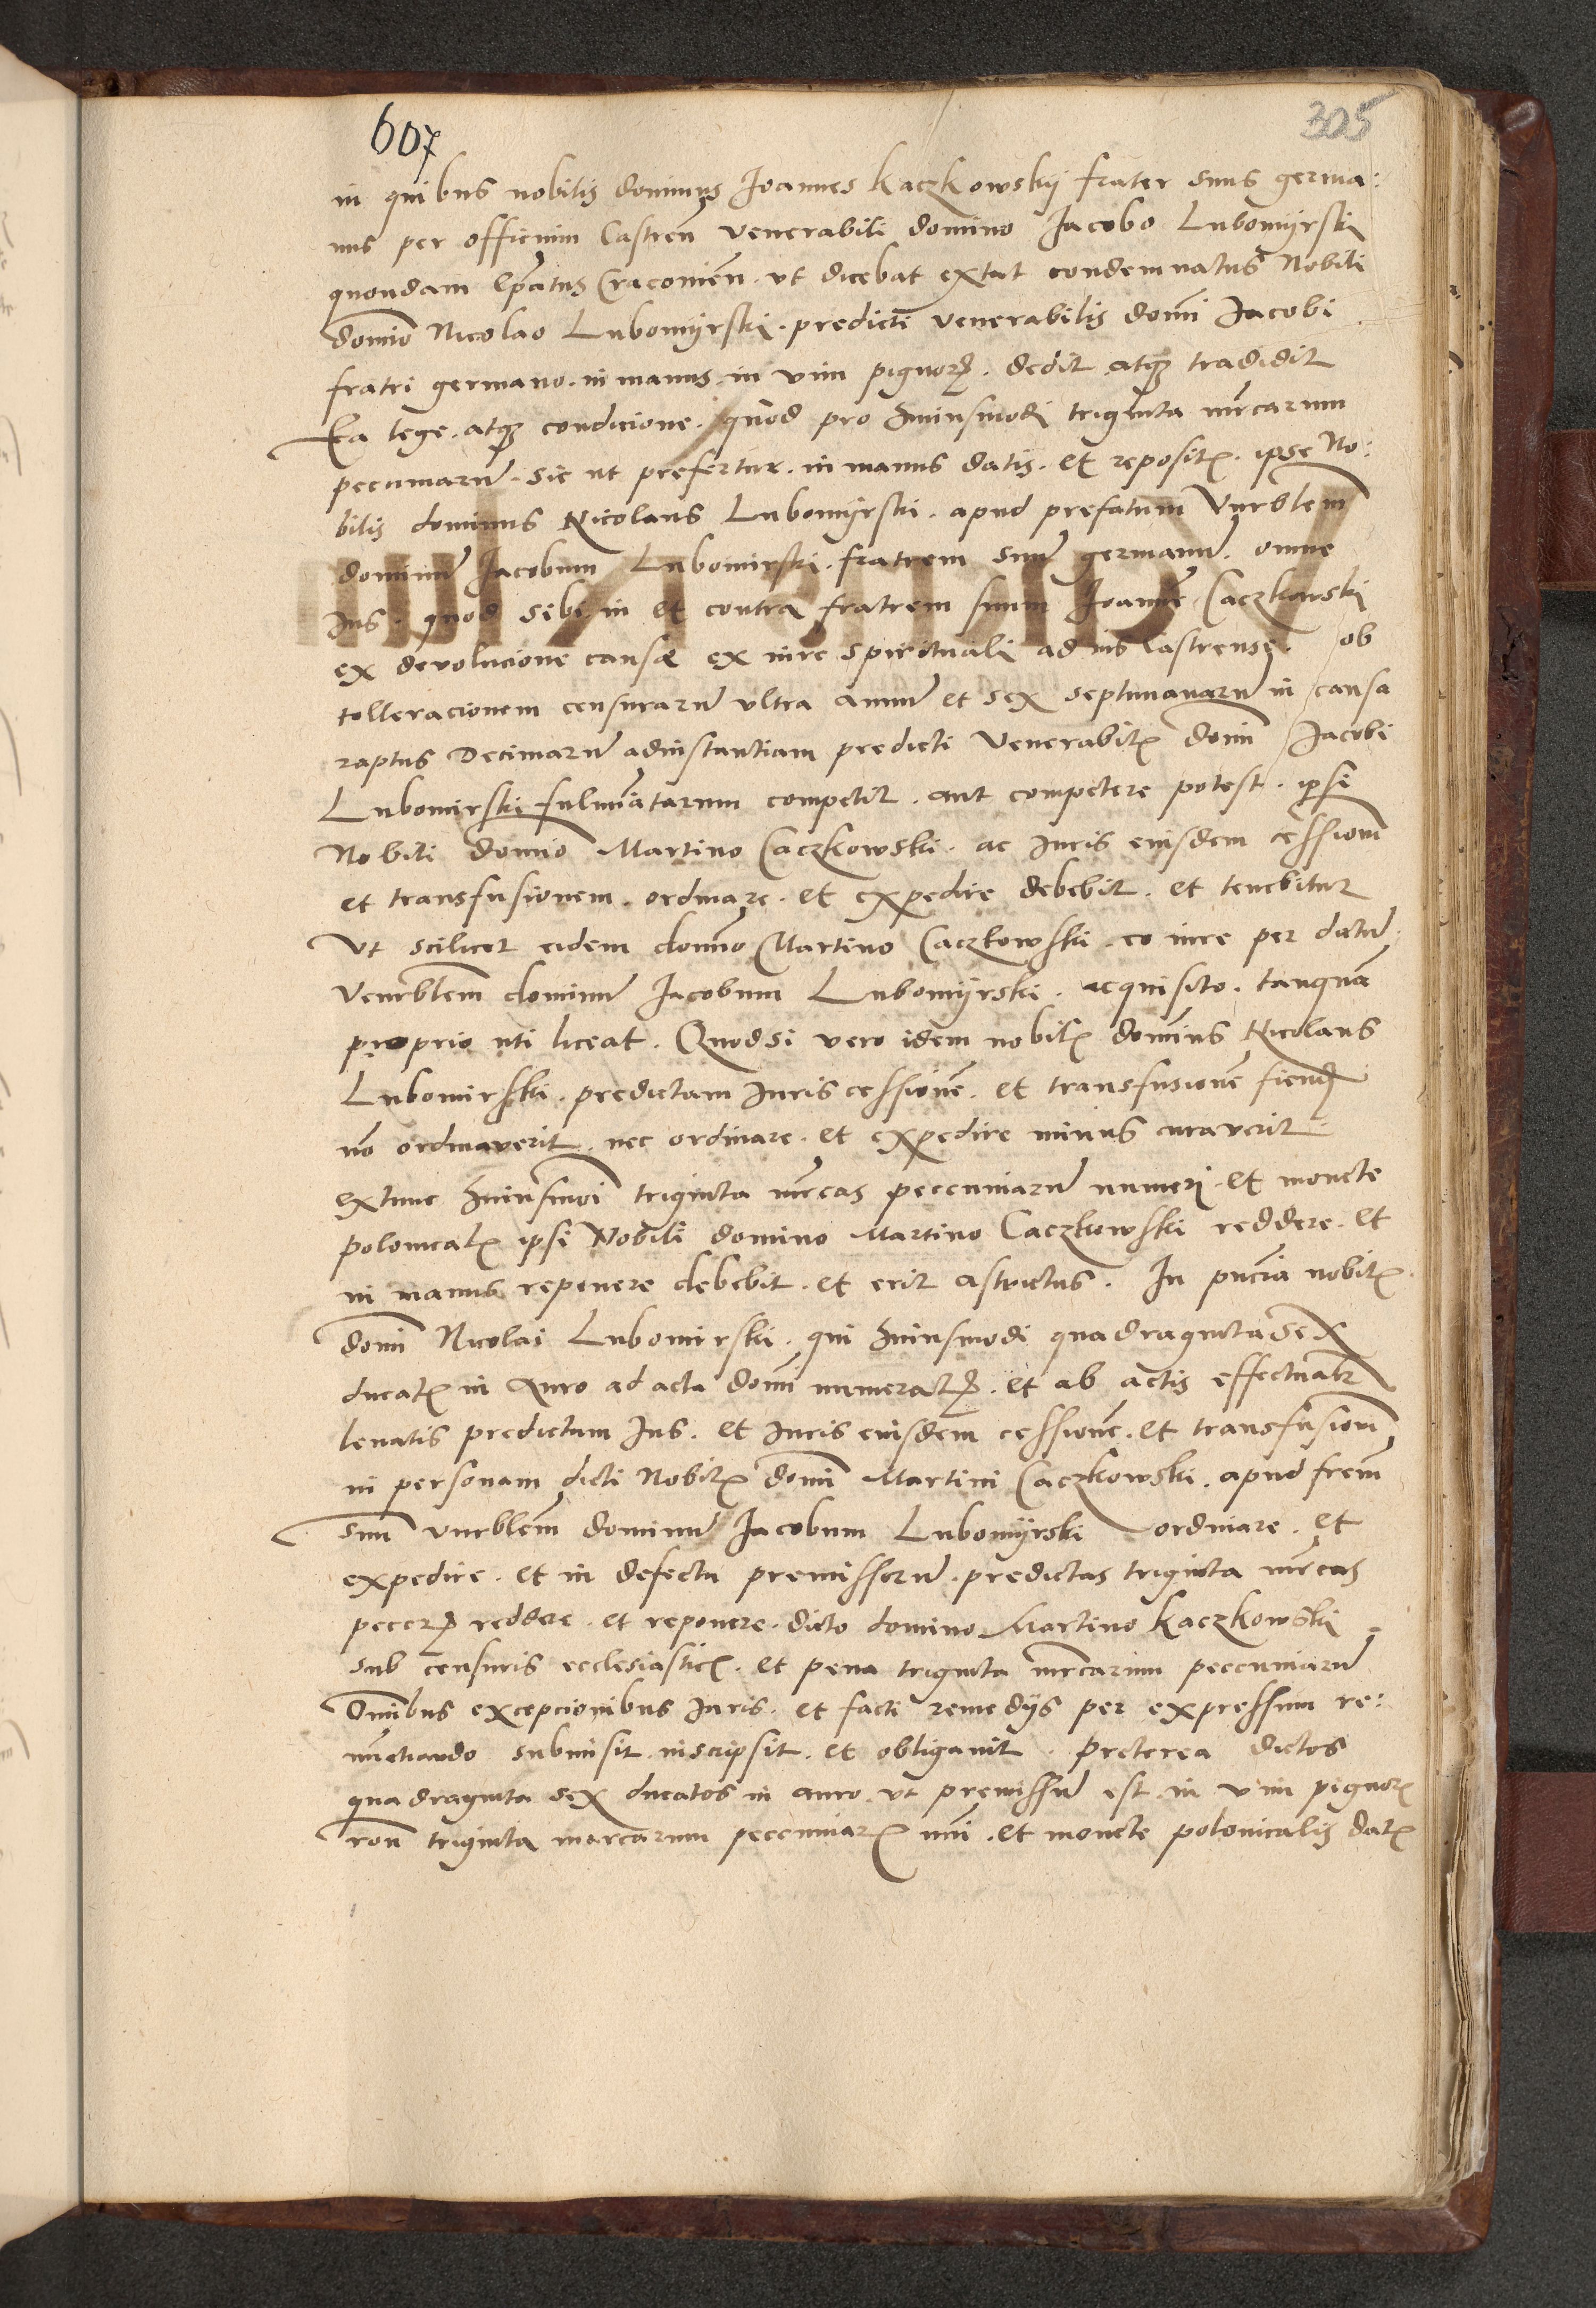 607
305
in quibus nobilis dominus Joannes Kaczkowskÿ frater suus germa:
nus per officium Castren̄ venerabili domino Jacobo Lubomÿrski
quondam Cracouien̄ vt dicebat extat condemnatus Nobili
domīo Nicolao Lubomÿrski. predicti venerabilis domī Jacobi
fratri germano. in manus. in vim pignor. dedit atq3 tradidit
Ea lege. atq3 condicione. quod pro huiusmodi triginta mrcarum
pecuniarū. sic ut prefertur. in manus datis. et reposit. ipse No:
bilis dominus Nicolaus Lubomÿrski. apud prefatum Vnrblem
dominū Jacobum Lubomirski. fratrem suū germanū. omne
Jus. quod sibi in et contra fratrem suum Joannē Caczkowski
ex devolucione causæ ex iure spirituali ad ius Castrense. ob
tolleracionem censurarū vltra annū et sex septimanarū in causa
raptus Decimarū ad instantiam predicti Venerabil domī Jacobi
Lubomirski fulmīatarum competit. aut competere potest. ipsi
Nobili domīo Martino Caczkowski. ac Juris eiusdem cessionem
et transfusionem. ordinare. et expedire debebit. et tenebitur
Vt scilicet eidem domīo Martino Caczkowski. eo iure per dictū
Venrblem dominū Jacobum Lubomÿrski. acquisito. tanquā
proprio uti liceat. Quod si vero idem nobil domīus Nicolaus
Lubomirski. predictam Juris cessionē. et transfusionē fiend
nō ordinaverit. nec ordinare. et expedire minus curaverit.
extunc huiusmōi triginta mrcas pecuniarū numeri. et monete
polonical ipsi Nobili domino Martino Caczkowski reddere. et
in manus reponere debebit. et erit astrictus. In pn̄cia nobil
domī Nicolai Lubomirski. qui huiusmodi quadraginta sex
ducat in Auro ad acta domī numerat. et ab actis effectualr
leuatis predictum Jus. et Juris eiusdem cessionē. et transfusionem
in personam dicti Nobil domī Martini Caczkowski. apud frem
suū vnrblem dominū Jacobum Lubomÿrski ordinare. et
expedire. et in defectu premissorū. predictas triginta mrcas
peccar reddere. et reponere. dicto domino Martino Kaczkowski
sub censuris ecclesiastic. et pena triginta mrcarum pecuniarū
Omībus excepcionibus Juris. et facti remedÿs per expressum re:
nūctiando submisit. inscripsit. et obligauit. preterea dictos
quadraginta sex ducatos in auro. vt premissū est. in vim pignor
ron̄ triginta marcarum pecuniar nūi. et monete polonicalis dat